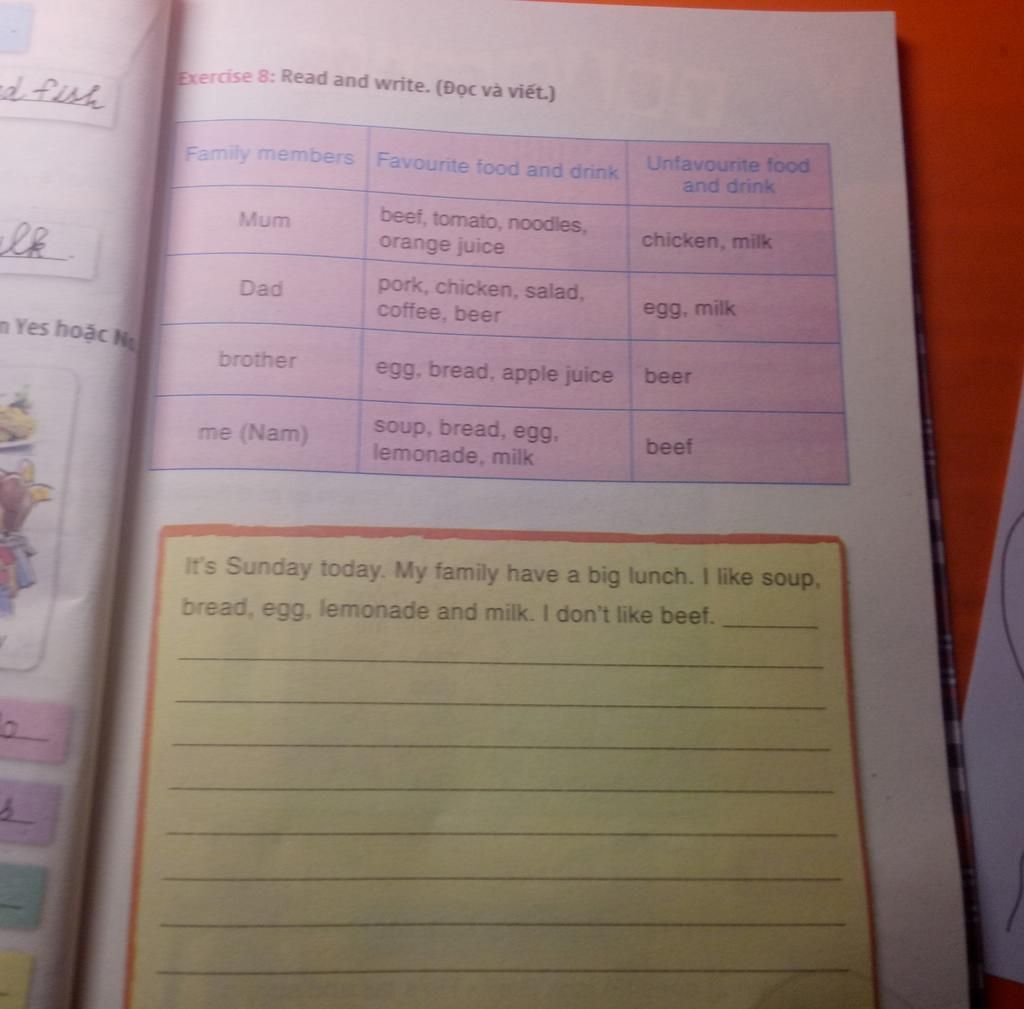 d fish
lk.
n Yes hoặc
Exercise 8: Read and write. (Đọc và viết.)
Family members Favourite food and drink Unfavourite food and drink
Mum beef, tomato, noodles, orange juice chicken, milk
Dad pork, chicken, salad, coffee, beer egg, milk
brother egg, bread, apple juice beer
me (Nam) soup, bread, egg, lemonade, milk beef
It's Sunday today. My family have a big lunch. I like soup,
bread, egg, lemonade and milk. I don't like beef.